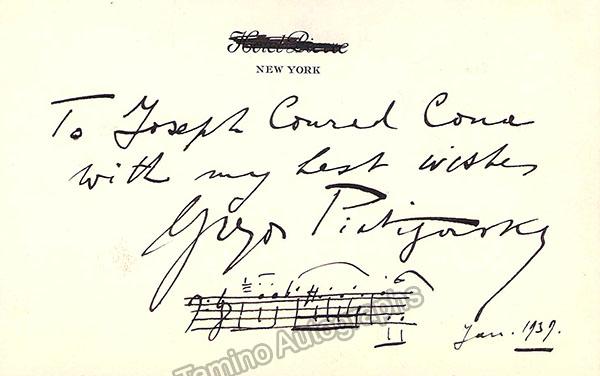 Hotel Pierre
NEW YORK
To Joseph Conrad Cona
with my best wishes
Gregor Piatigorsky
Jan. 1939.
Tamino Autographs